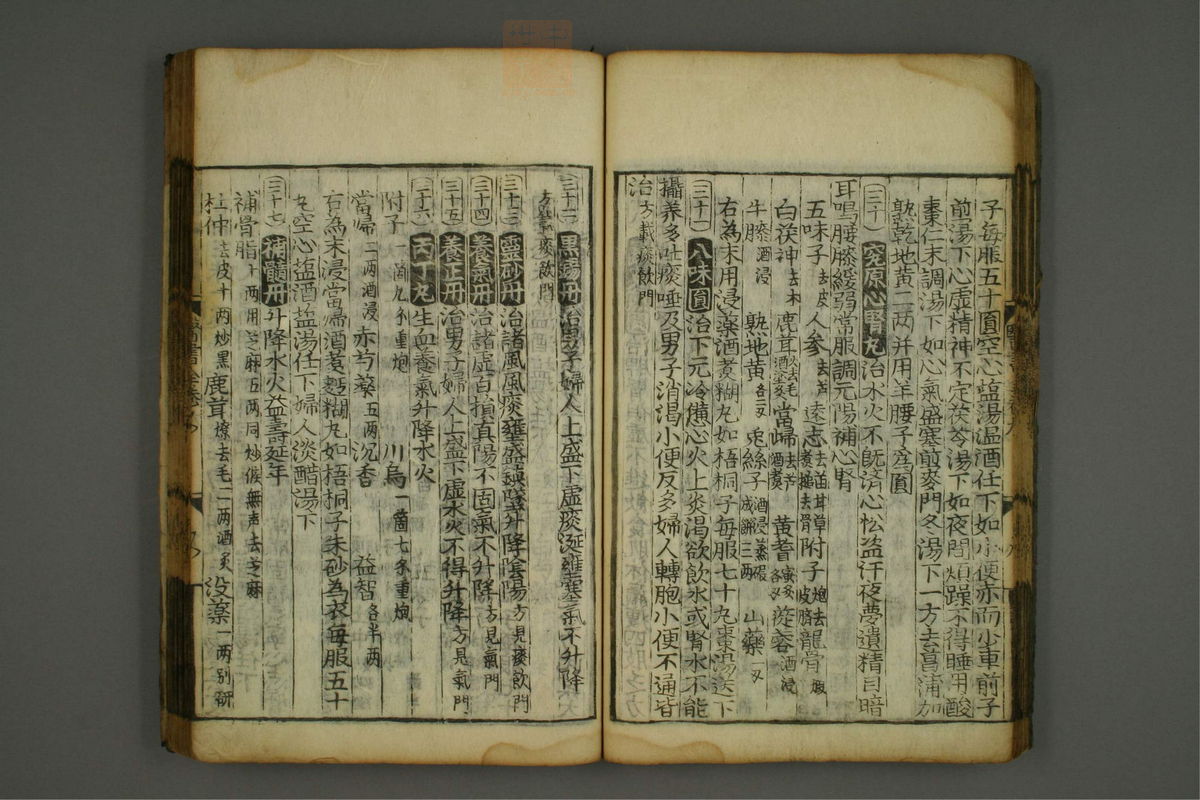 子每服五十圓空心盐湯温酒任下如小便赤而少車前子
前湯下心虚精神不定茯苓湯下如夜間煩躁不得睡用酸
棗仁末調湯下如心氣盛塞煎麥門冬湯下一方去菖蒲加
熟乾地黄二两并用羊腰子為圓
(三十)究原心腎丸治水火不既濟心忪盗汗夜夢遺精目暗
耳鳴腰膝緩弱常服調元陽補心腎
五味子去皮人參去芦遠志去苗茸草煮搥去骨附子炮去皮臍龍骨煅
白茯神去木鹿茸火去毛酒塗炙當歸去芦酒煮黄耆蜜炙各二两蓯蓉酒浸
牛膝酒浸 熟地黄各二两兎絲子酒浸蒸碾成餅三两山藥二两
右為末用浸藥酒煮糊丸如梧桐子每服七十九棗湯送下
(三十一)八味圓治下元冷憊心火上炎渴欲飲水或腎水不能
攝養多吐痰唾及男子消渴小便反多婦人轉胞小便不通皆
治方載痰飲門
(三十二)黒錫丹治男子婦人上盛下虚痰涎壅塞氣不升降
方載痰飲門
(三十三)靈砂丹治諸風風痰壅盛鎮墜升降陰陽方見痰飲門
(三十四)養氣丹治諸虚百損真陽不固氣不升降方見氣門
(三十五)養正丹治男子婦人上盛下虚水火不得升降方見氣門
(三十六)丙丁丸生血養氣升降水火
附子一箇九分重炮 川烏一箇七条重炮
當歸二两酒浸 赤芍藥五两沉香 益智各半两
右為末浸當歸酒煮麪糊丸如梧桐子朱砂為衣每服五十
丸空心盐酒盐湯任下婦人淡醋湯下
(三十七)補髓丹升降水火益壽延年
補骨脂十两用芝麻五两同炒候無声去芝麻
杜仲去皮十两炒黒鹿茸燎去毛二两酒炙没藥一两别研